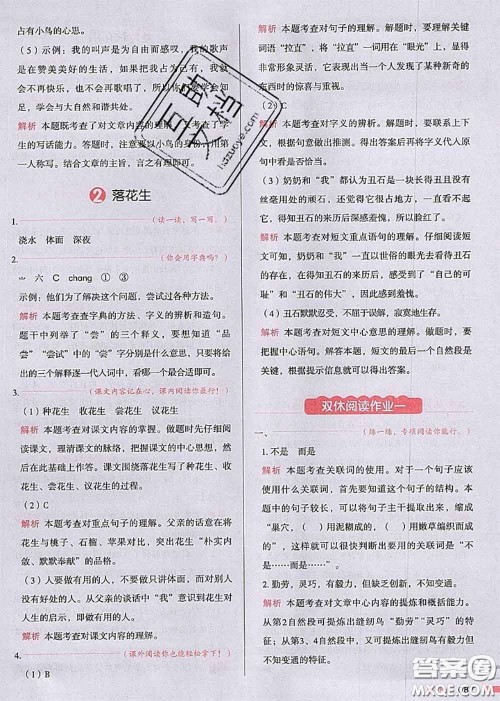 占有小鸟的心思。
(5)示例:我的叫声是为自由而感叹,我的歌声
是在赞美美好的生活,如果把我占为己有,我就
会不再快乐,也不会再歌唱。我会好好学习知
足,学会与大自然和谐共处。
解析 本题既考查了对文章内容的理解,又考查了学
生的写话能力。答题时要注意以小鸟的身份,用第
一人称写。结合文章的主旨,言之有理即可。
2 落花生
1.(读一读,写一写。)
浇水 体面 深夜
2.(你会用字典吗?)
六 C chang ① ③
示例:他们为了解决这个问题,尝试过各种方法。
解析 本题考查查字典的方法、字义的辨析和造句。
题干中列举了“尝”的三个释义,要想知道“品
尝”“尝试”中的“尝”字分别是什么意思,只要将给
出的三个解释逐一代入词中,看看哪个最合适即可。
3.(课文内容记在心,课内阅读你能行!)
(1)种花生 收花生 尝花生 议花生
解析 本题考查对课文内容的掌握。做题时先仔细阅
读课文,理清课文的脉络,把握课文的中心思想,然
后在此基础上作答。课文围绕落花生写了种花生、收
花生、尝花生、议花生的过程。
(2)C
解析 本题考查对重点句子的理解。父亲的话意在将
花生与桃子、石榴、苹果对比,突出花生的“朴实内
敛、默默奉献”的品格。
(3)人要做有用的人,不要做只讲体面,而对别人
没有好处的人。从父亲的谈话中“我”意识到花生对
人生的启示,即做有用的人。
解析 本题考查对课文内容的理解。
4.(课外阅读你也能轻松拿下!)
(1)B
解析 本题考查对句子的理解。做题时,要理解关键
词语“拉直”,将“拉直”一词用在“眼光”上,显得
非常形象灵活,它表现出当一个人发现了某种新奇的
东西时的惊喜与重视。
(2)C
解析 本题考查对字义的辨析。做题时,要联系上下
文,根据句意仔细辨析,答案选出后再将字义代入原
句中试试是否合适。
(3)奶奶和“我”认为丑石是一块长得丑且没有丝
毫用处的石头,觉得它还很占地方,一直看不惯
它。后来得知丑石的来历和它的巨大价值后,奶奶和
“我”又觉得丑石是伟大的,为自己以前的目光短
浅,不识丑石而深感羞愧,所以脸红了。
解析 本题考查对短文重点语句的理解。仔细阅读短
文可知,奶奶和“我”一直以世俗的眼光看待丑石,
当明白了丑石的伟大时,终于感受到了“自己的可
耻”和“丑石的伟大”,因此感到羞愧。
(4)丑石默默忍受、不屈于误解、寂寞地生存。
解析 本题考查对短文中心意思的理解。做题时,要
抓住中心语句,解答本题,短文的最后一个自然段是
关键,根据提示信息就可以归纳出来。
双休阅读作业一
一、(练一练,专项阅读你能行。)
1.不是 而是
解析 本题考查关联词的使用。对于一个句子应该
使用什么关联词,首先要知道整个句子的意思。
本题句子较长,对于本句我们可以采取主干提炼
的方法,将不影响句子的修饰去掉,缩减成
“巢穴,( )用泥糊成的,( )用嫩草编织而成
的”,这样就可以很快判断出要用的关联词是“不
是……而是……”。
2.勤劳,灵巧,有毅力,但缺乏创新,不知变通。
解析 本题考查对文章中心内容的提炼和概括能力。
从文章的第1、2自然段可以提炼出缝纫鸟“勤劳”
“灵巧”的特点;从第3、4自然段可以提炼出缝
纫鸟的另一个特点——有毅力,但不知创新、不
知变通的特点。
互助文档
huzuoye.com
答案圈
MXQE.COM